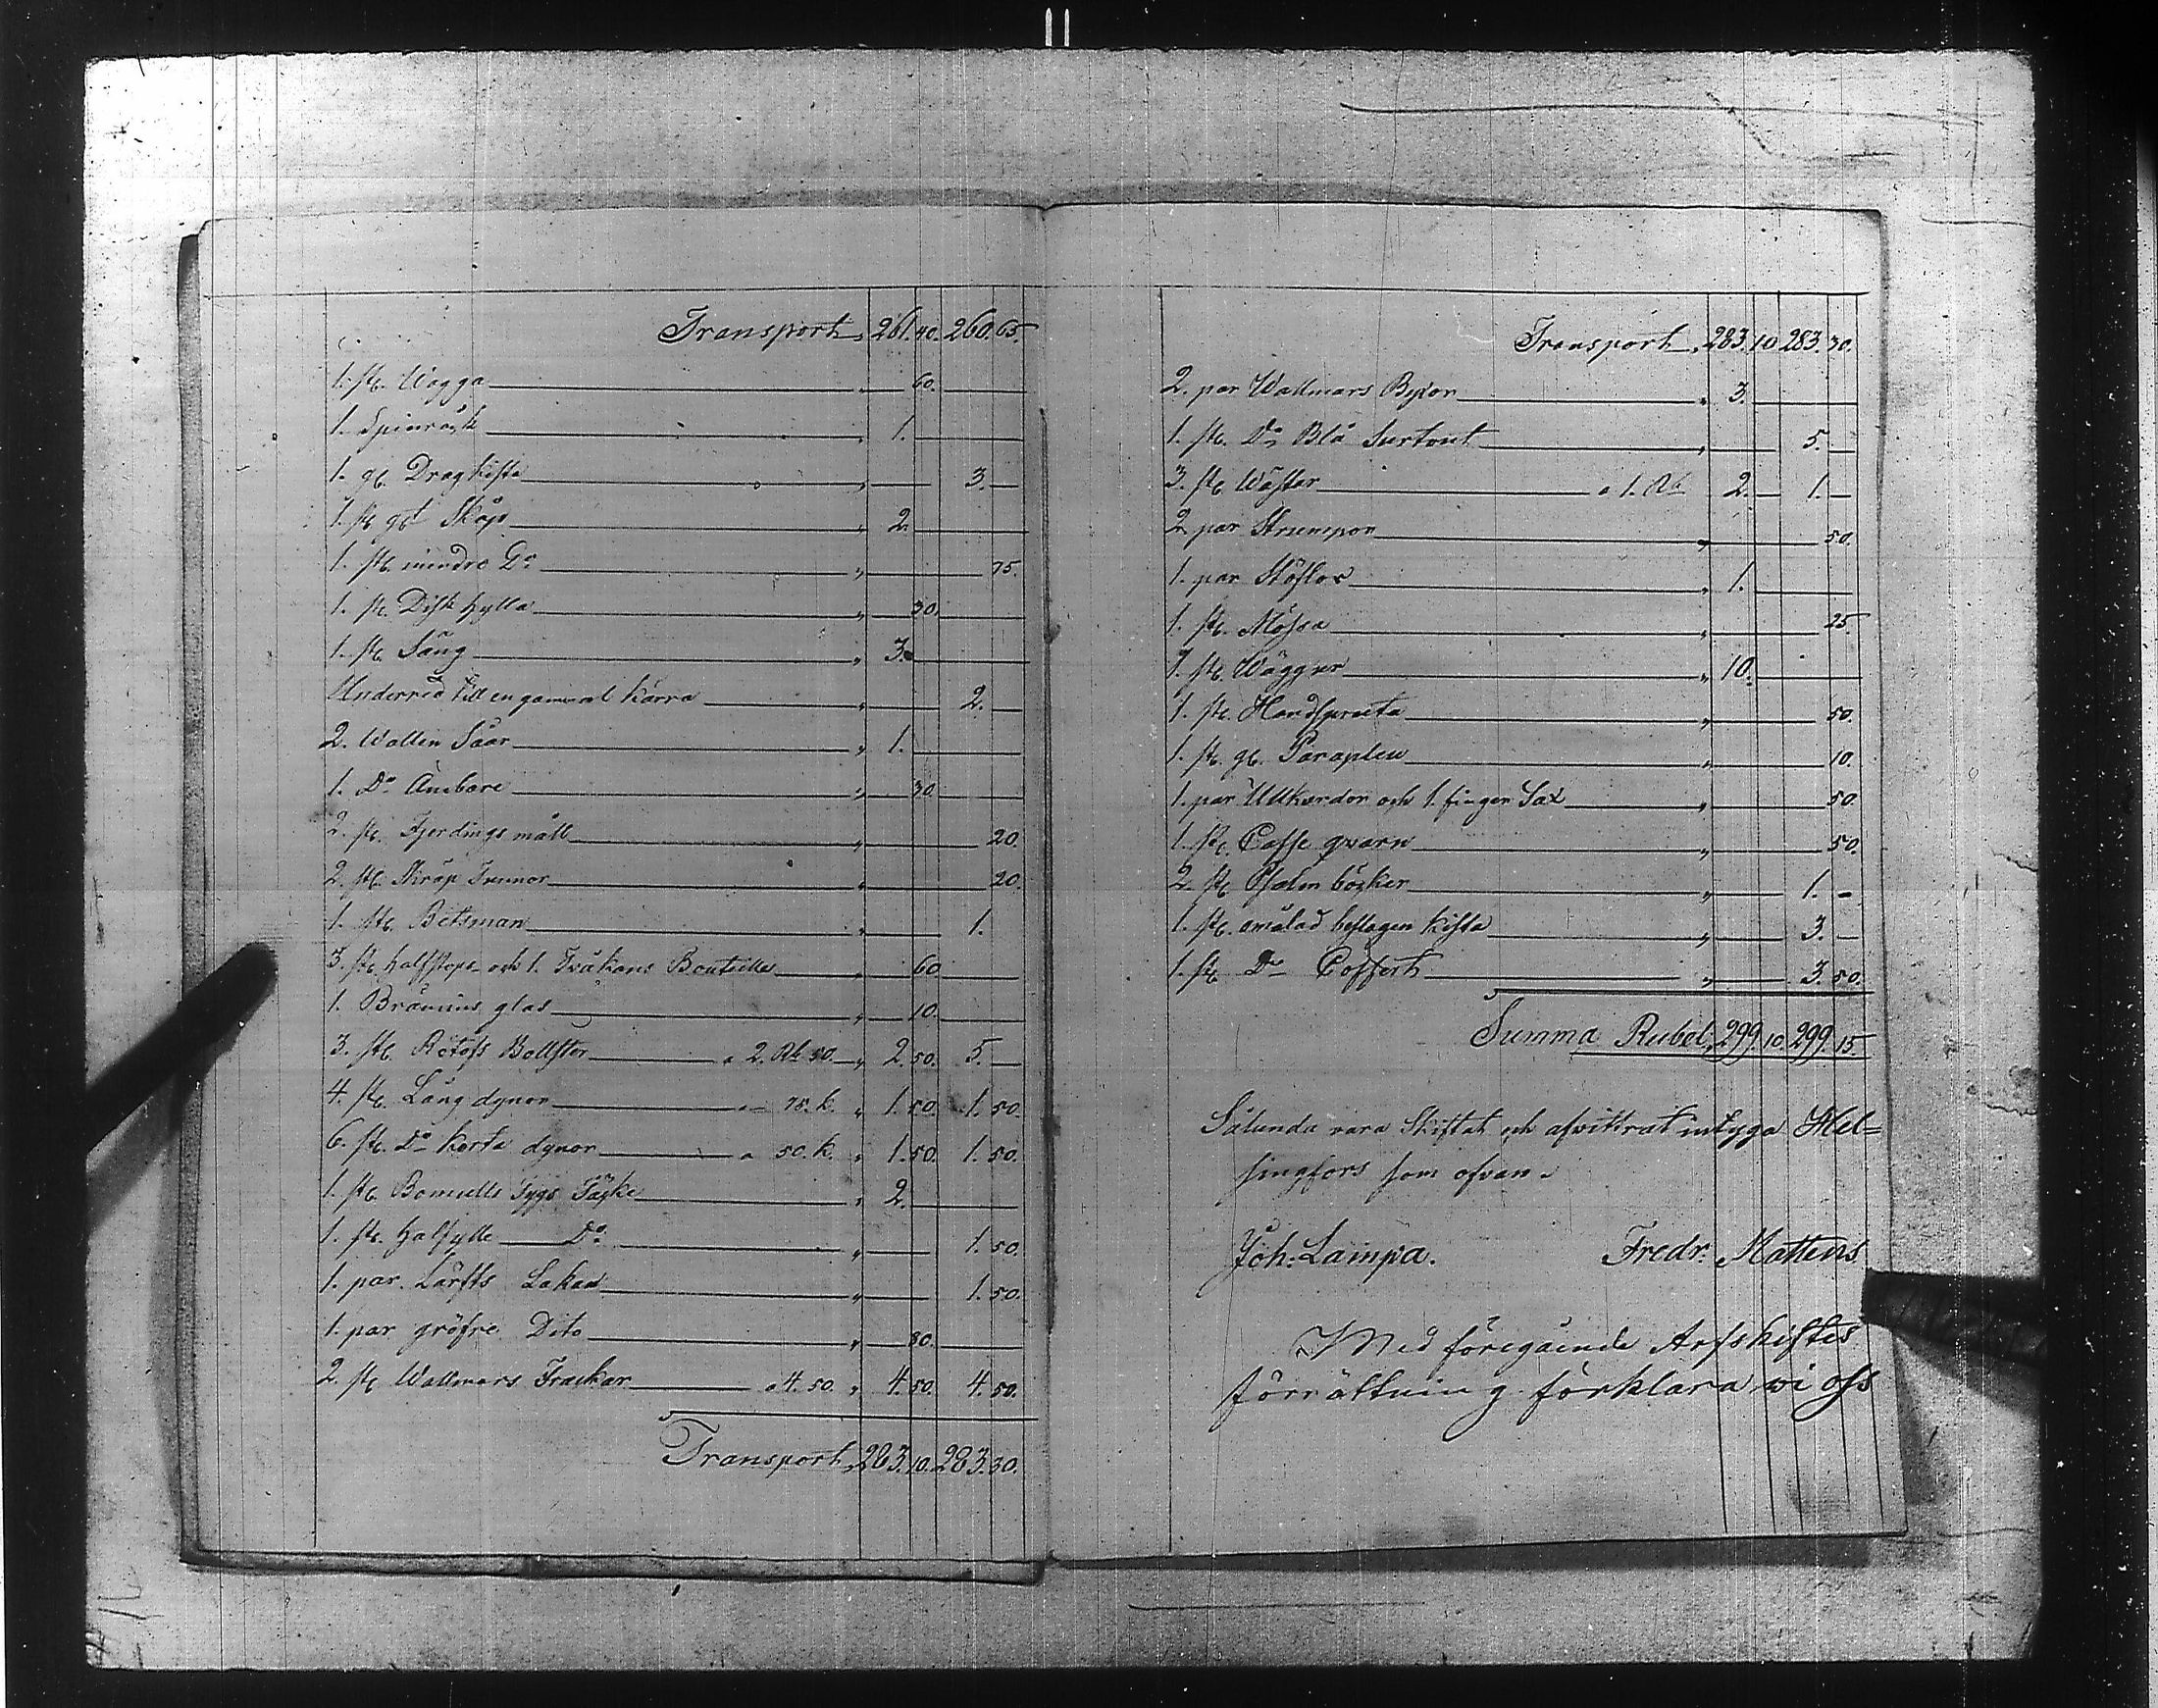 Transport " 261. 40. 260. 65.
1. st. Wagga " 60.
1. Spinråck " 1.
1. gl. Dragkista " 3.
1. st. gl Skåp " 2.
1. st. mindre Do " 75.
1. st. Disk hylla " 30.
1. st. Säng " 3.
Underred till en gammal kärra " 2.
2. Watten Såar " 1.
1. Do Ämbare " 30.
2. st. Fjerdings mått " 20.
2. st. Skräp Tunnor " 20.
1. st. Betsman " 1.
3. st. halfstops och 1. Tvåkans Bouteille " 60
1. Brännvins glas " 10.
3. st. Bollster a 2. Rb. 50. " 2. 50. 5.
4. st. Lång dynor a 75. k. " 1. 50. 1. 50.
6. st. Do korta dynor a 50. k. " 1. 50. 1. 50.
1. st. Bomulls Tygs Täcke " 2.
1. st. halfylle Do " 1. 50.
1. par Lärfts Lakan " 1. 50.
1. par gröfre Dito " 80.
2. st. Wallmars Frackar a 4. 50. " 4. 50. 4. 50.
Transport " 283. 10. 283. 30.
Transport " 283. 10 283. 30.
2. par Wallmars Byxor " 3.
1. st. Do Blå Surtout " 5.
3. st. Wästar a 1. Rb 2. 1.
2 par Strumpor " 50.
1. par Stöflor " 1.
1. st. Mössa " 25.
1. st. Wäggur " 10.
1. st. Handspruta " 50.
1. st. gl. Paraplew " 10.
1. par Ullkardor och 1. finger Sax " 50.
1. st. Caffe qvarn " 50.
2. st. Psalm böcker " 1.
1. st. omålad beslagen kista " 3.
1. st. Do Coffert " 3. 50.
Summa Rubel " 299. 10 299. 15.
Sålunda vara Skiftat och afwittrat intyga Hel=
singfors som ofvan.
Joh: Lampa. Fredr. Mattens
Med föregående Arfskiftes
förrättning förklara wi oss